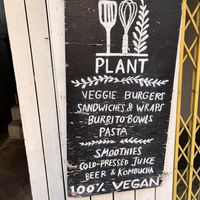 PLANT
VEGGIE BURGERS
SANDWICHES & WRAPS
BURRITO BOWLS
PASTA
SMOOTHIES
COLD-PRESSED JUICE
BEER & KOMBUCHA
100% VEGAN